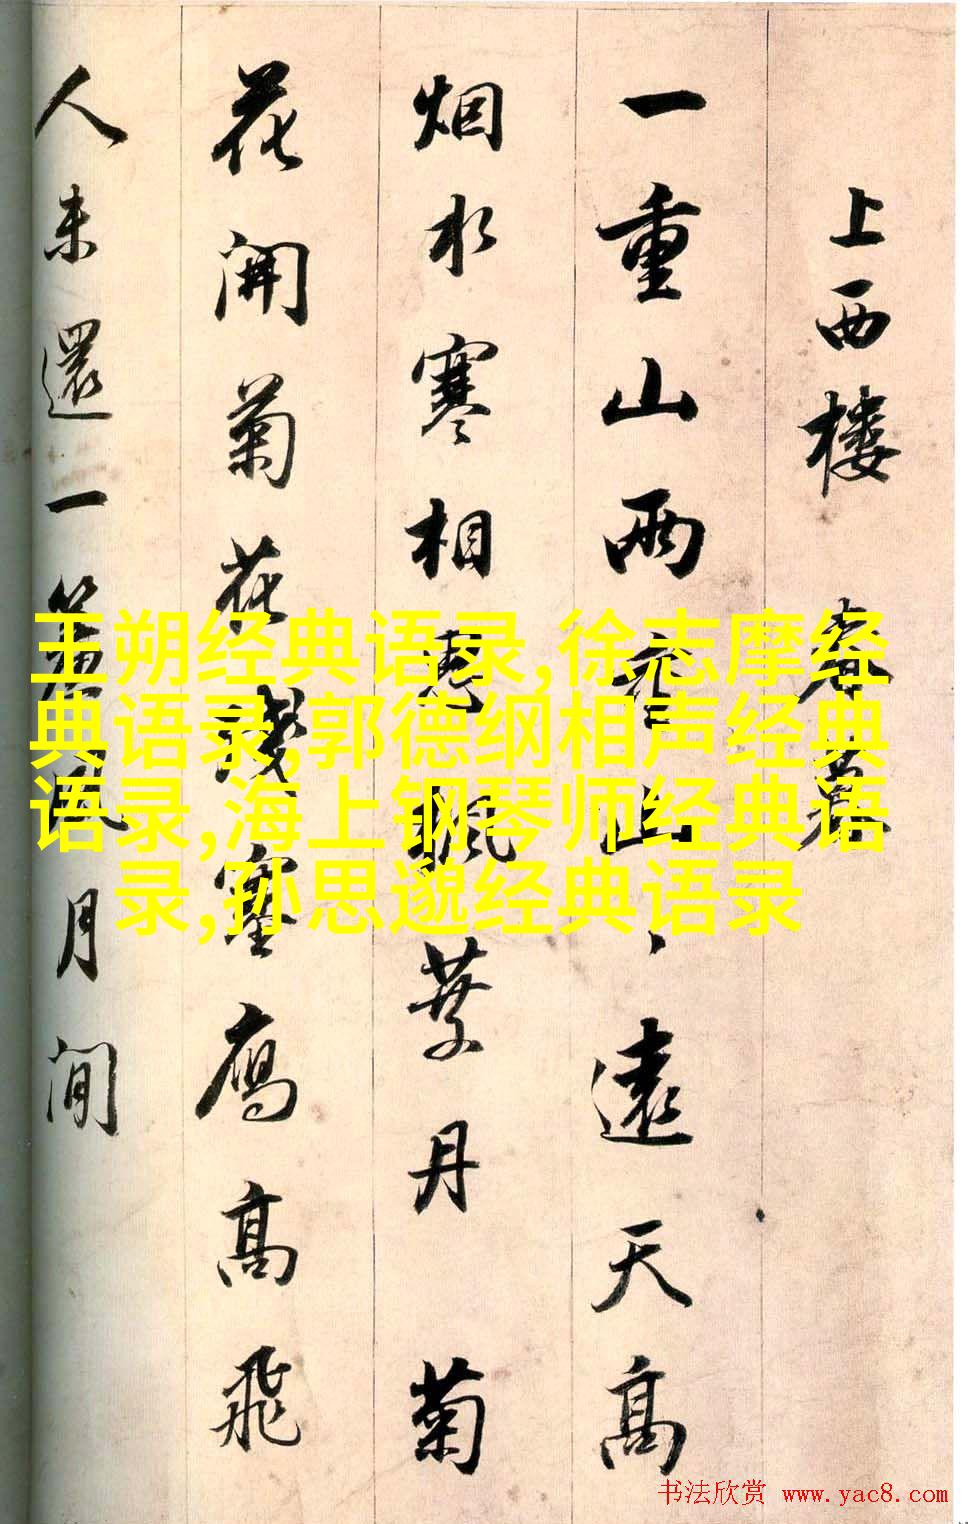 上西楼 春暮
一重山两重山山遠天高
烟水寒相思楓葉丹 菊
花開菊花残塞鴈高飛
人未還一簾風月閒
王朔经典语录,徐志摩经
典语录,郭德纲相声经典
语录,海上钢琴师经典语
录,孙思邈经典语录
书法欣赏 www.yac8.com